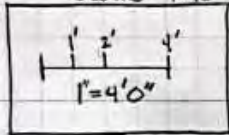 1' 2' 4'
1"=4'0"